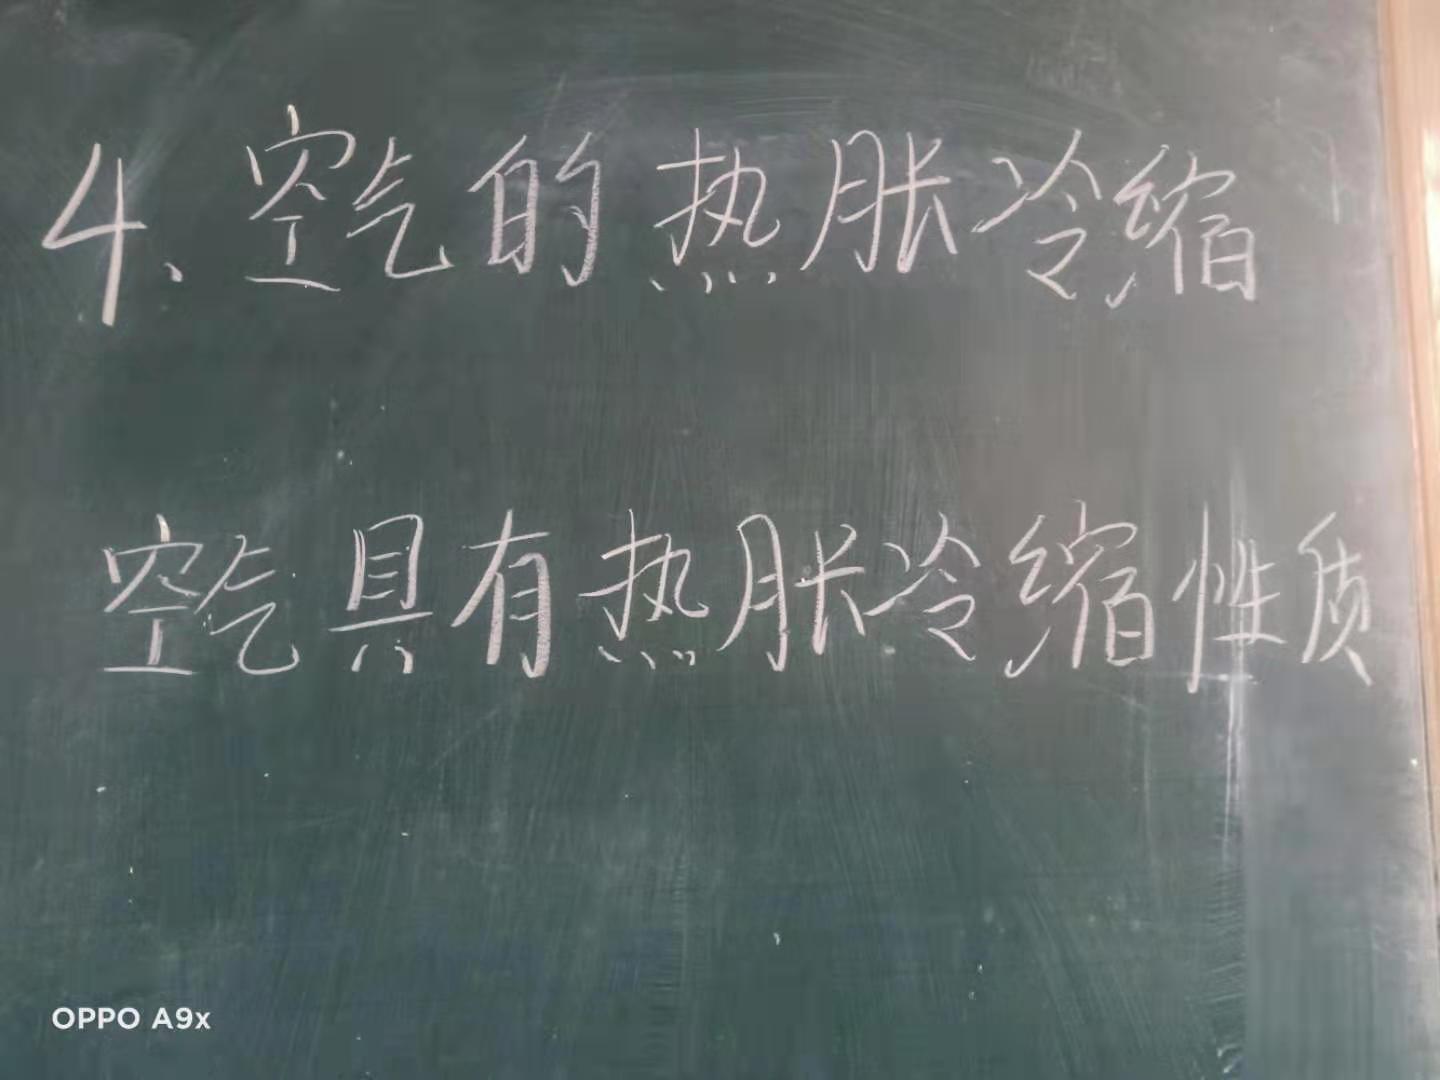 4、空气的热胀冷缩
空气具有热胀冷缩性质
OPPO A9x